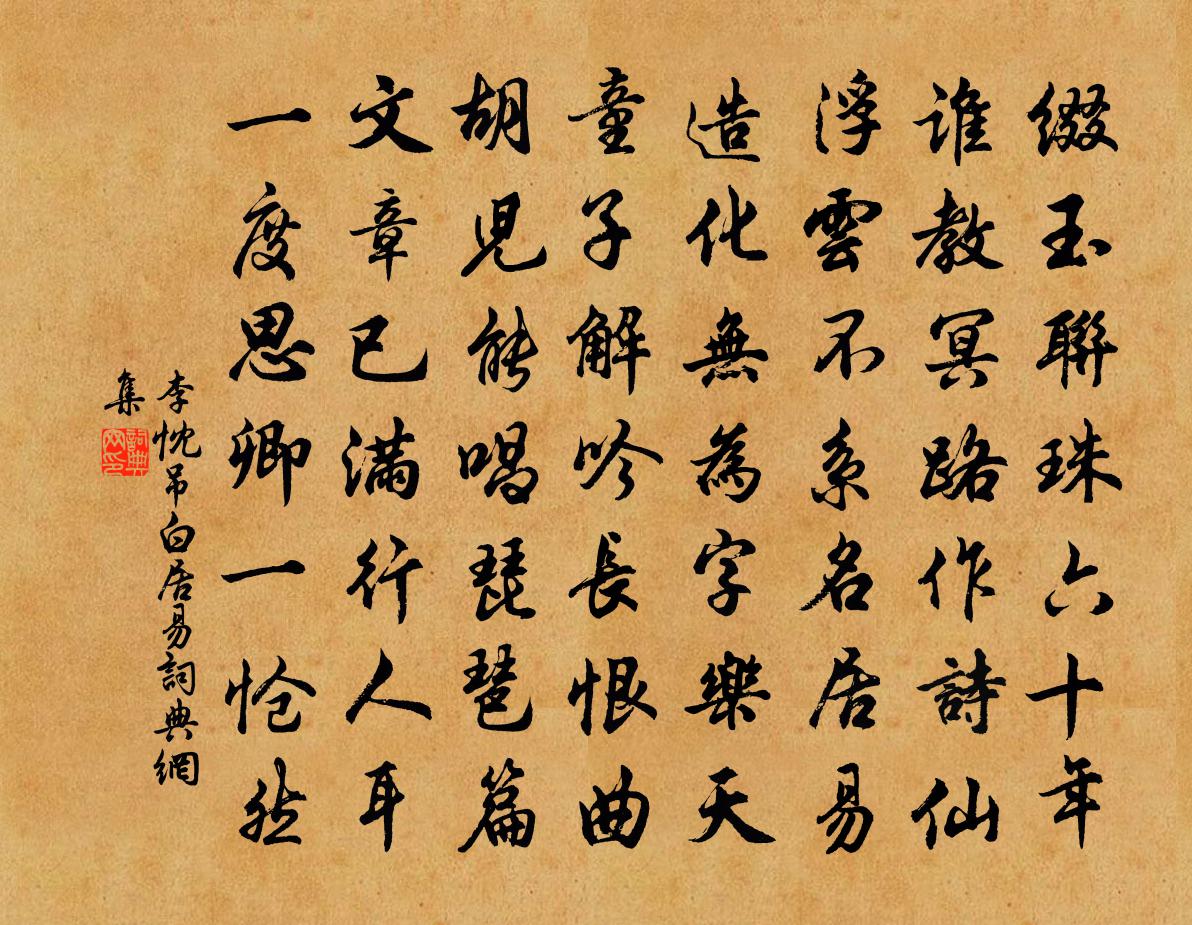 缀玉聯珠六十年
誰教冥路作詩仙
浮雲不系名居易
造化無為字樂天
童子解吟長恨曲
胡兒能唱琵琶篇
文章已滿行人耳
一度思卿一怆然
李忱吊白居易詞典網
集
詞典
网印